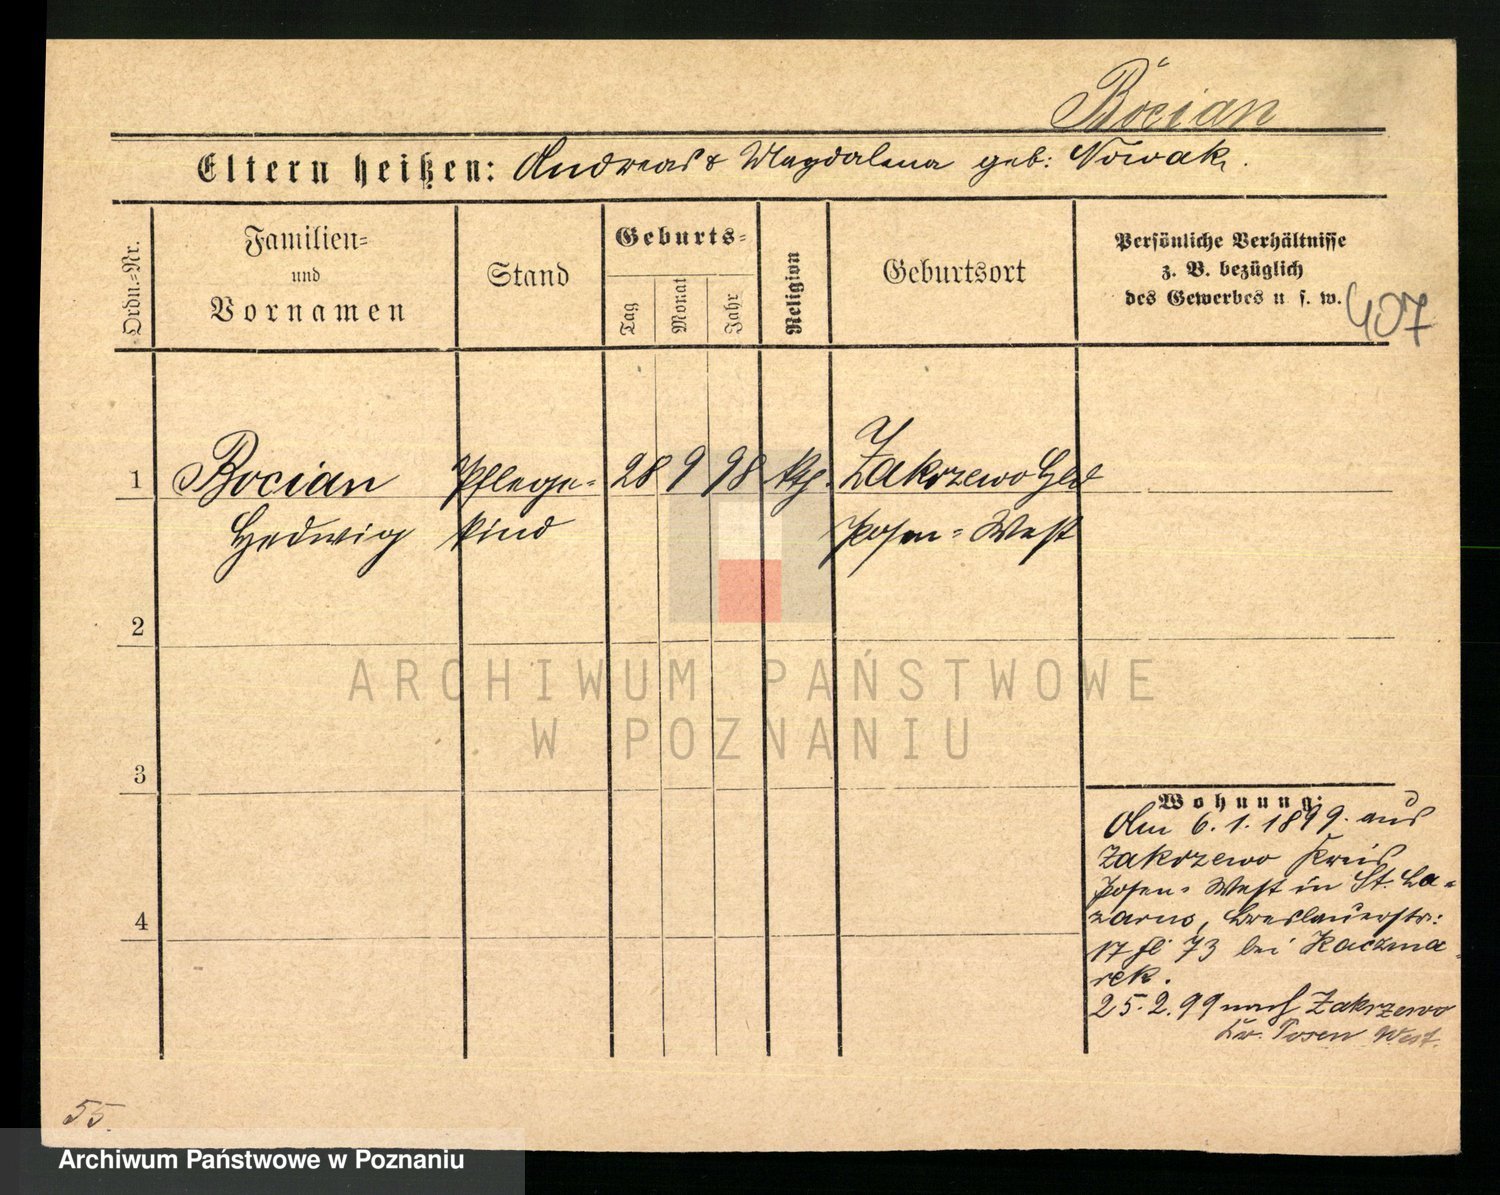 Bocian
Eltern heißen: Andreas & Magdalena geb: Nowak.
Ordn.=Nr.
Familien=
und
Vornamen
Stand
Geburts=
Tag
Monat
Jahr
Religion
Geburtsort
Persönliche Verhältnisse
z. B. bezüglich
des Gewerbes u s. w.
407
1
Bocian
Hedwig
Pflege=
kind
28 9 98 kth.
Zakrzewo
Posen=West
2
3
4
Wohnung:
Am 6.1.1899. aus
Zakrzewo Kreis
Posen=West in St. La=
zarus, Breslauerstr:
17 73 bei Kaczma
rek.
25.2.99 nach Zakrzewo
Kr. Posen West.
55.
ARCHIWUM PAŃSTWOWE
W POZNANIU
Archiwum Państwowe w Poznaniu